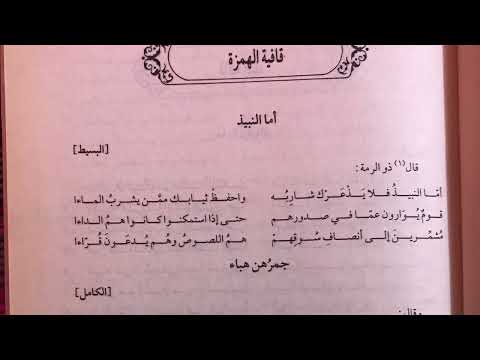 قافية الهمزة
أما النبيذ
[البسيط]
قال(١) ذو الرمة :
أمّا النبيذُ فلا يَذْعَرْكَ شارِبُه واحفظْ ثيابك ممَّن يشربُ الماءا
قومٌ يُوَارون عمّا في صدورهم حتى إذا استمكنوا كانوا همُ الداءا
مُشَمِّرينَ إلى أنصافِ سُوقِهمْ همُ اللصوصُ وهُم يُدعَونَ قُرَّاءا
جمرُهن هباء
[الكامل]
وقال :